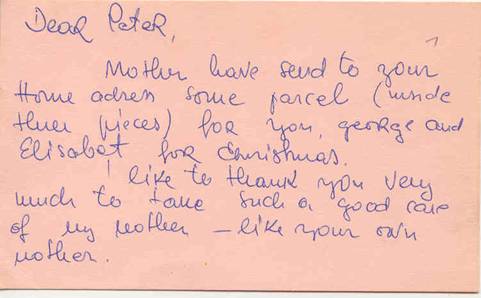 Dear Peter,
Mother have send to your
Home adress some parcel (inside
thier pieces) for you, george and
Elisabet for Christmas.
I like to thank you very
much to take such a good care
of my mother – like your own
mother.